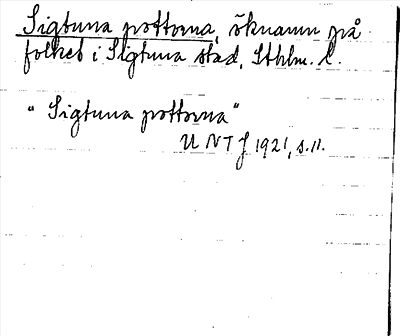 Sigtuna pottorna, öknamn på
folket i Sigtuna stad, Sthlm. l.
"Sigtuna pottorna"
U N T J 1921, s. 11.